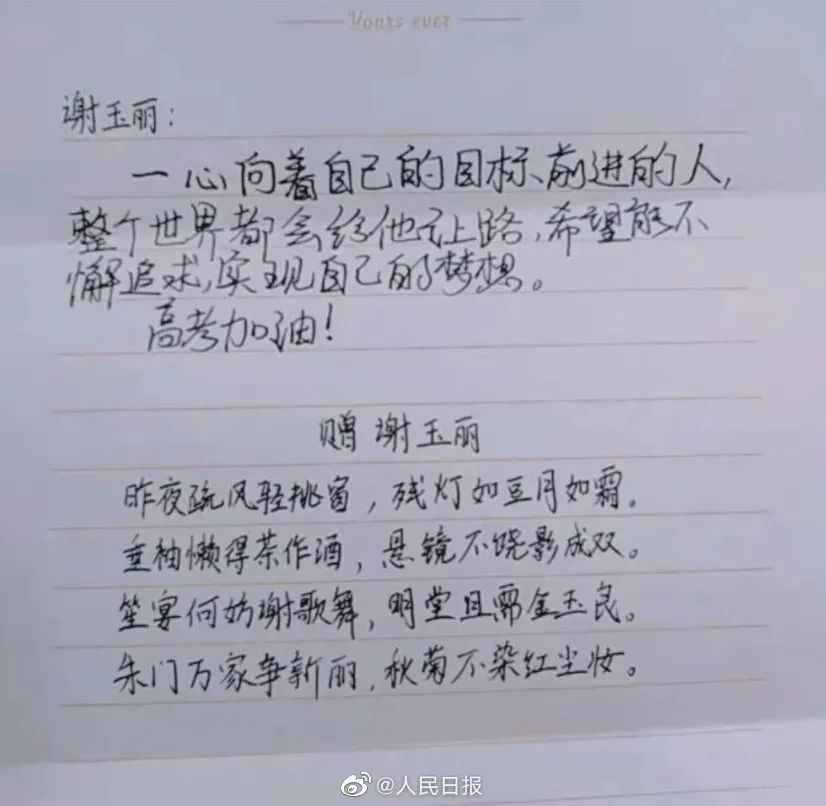 Yours ever
谢玉丽：
一心向着自己的目标前进的人，
整个世界都会给他让路，希望能不
懈追求，实现自己的梦想。
高考加油！
赠 谢玉丽
昨夜疏风轻挑窗，残灯如豆月如霜。
垂柚懒得茶作酒，悬镜不饶影成双。
笙宴何妨谢歌舞，明堂且需金玉良。
朱门万家争新丽，秋菊不染红尘妆。
@人民日报